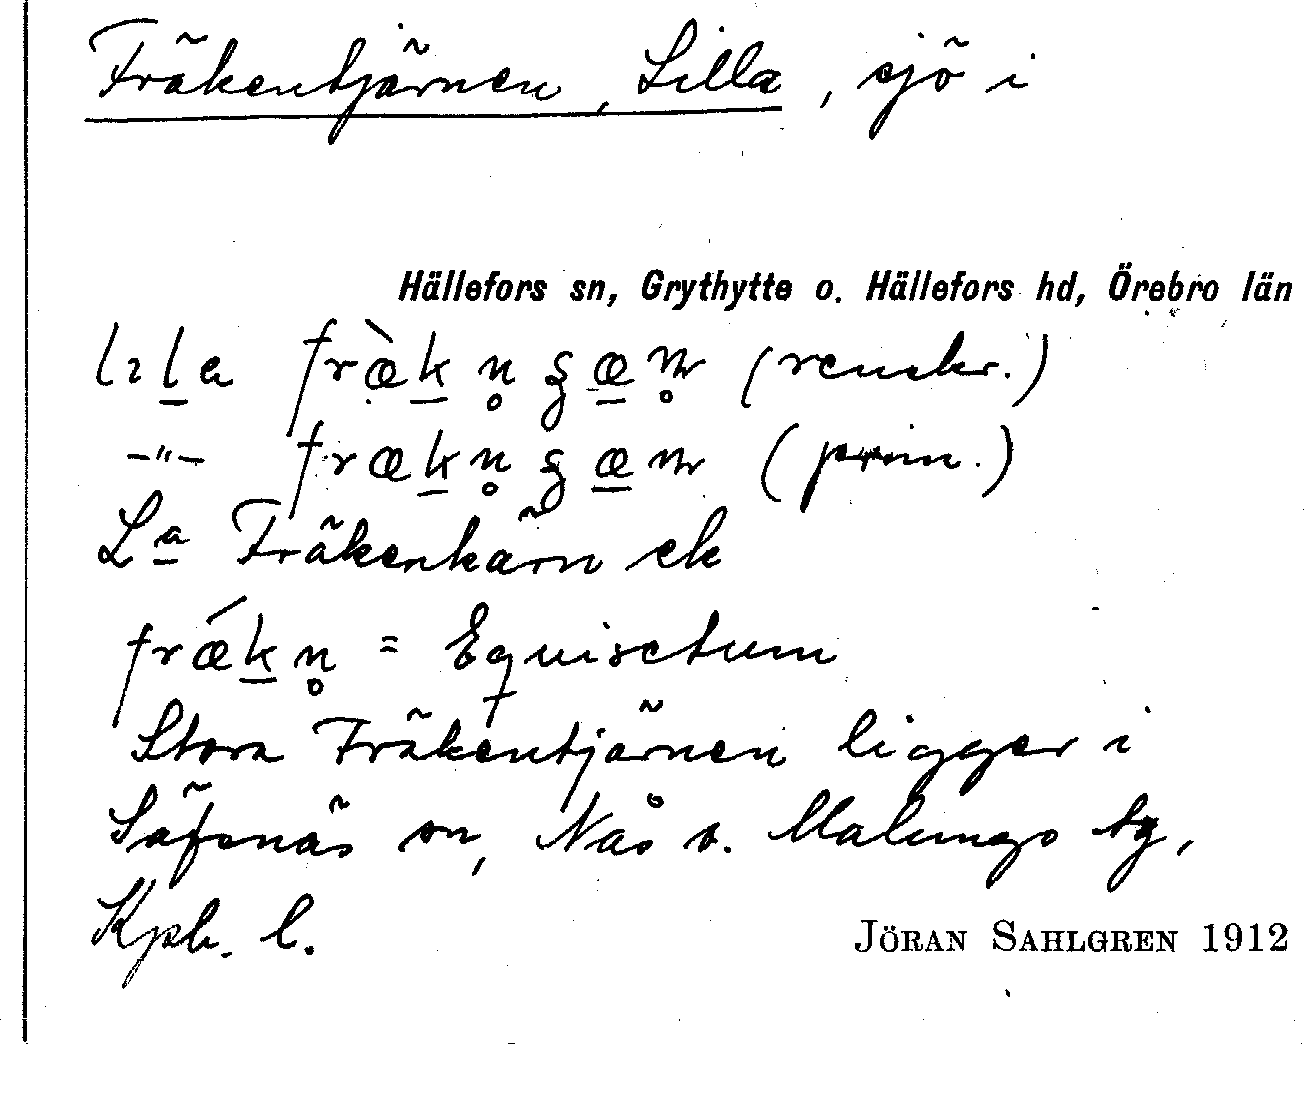 Fräkentjärnen, Lilla, sjö i
Hällefors sn, Grythytte o. Hällefors hd, Örebro län
lıla fræ̀kn̥ ʂæn̥ (renskr.)
–"– frækn̥ ʂæn (prim.)
La Fräkenkärn ek
frǽkn̥ = Equisetum
Stora Fräkentjärnen ligger i
Säfsnäs sn, Nås o. Malungs tg,
Kpb. l.
JÖRAN SAHLGREN 1912